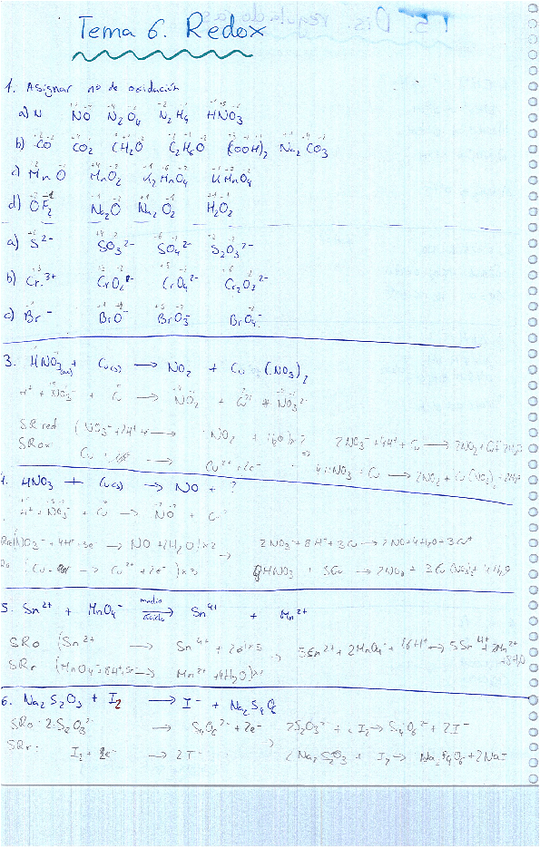 Tema 6. Redox
1. Asignar nº de oxidación
a) N NO N2O4 N2H4 HNO3
b) CO CO2 CH2O C2H6O (COOH)2 Na2CO3
c) MnO MnO2 K2MnO4 KMnO4
d) OF2 Na2O Na2O2 H2O2
a) S2- SO3 2- SO4 2- S2O3 2-
b) Cr3+ CrO2- CrO4 2- Cr2O7 2-
c) Br- BrO- BrO3- BrO4-
3. HNO3(aq) + Cu(s) → NO2 + Cu(NO3)2
H+ + NO3- + Cu → NO2 + Cu2+ + NO3-
SRred (NO3- + 2H+ + → NO2 + H2O)x2 2NO3- + 4H+ + Cu → 2NO2 + Cu2+ + 2H2O
SRox Cu → Cu2+ + 2e- 4HNO3 + Cu → 2NO2 + Cu(NO3)2 + 2H2O
4. HNO3 + Cu(s) → NO + ?
H+ + NO3- + Cu → NO + Cu
(NO3- + 4H+ + 3e → NO + 2H2O)x2 2NO3- + 8H+ + 3Cu → 2NO + 4H2O + 3Cu2+
(Cu → Cu2+ + 2e-)x3 8HNO3 + 3Cu →
5. Sn2+ + MnO4- medio ácido → Sn4+ + Mn2+
SRo (Sn2+ → Sn4+ + 2e-)x5 5Sn2+ + 2MnO4- + 16H+ → 5Sn4+ + 2Mn2+ + 8H2O
SRr (MnO4- + 8H+ + 5e → Mn2+ + 4H2O)x2
6. Na2S2O3 + I2 → I- + Na2S4O6
SRo 2S2O3 2- → S4O6 2- + 2e- 2S2O3 2- + I2 → S4O6 2- + 2I-
SRr I2 + 2e- → 2I- 2Na2S2O3 + I2 → Na2S4O6 +